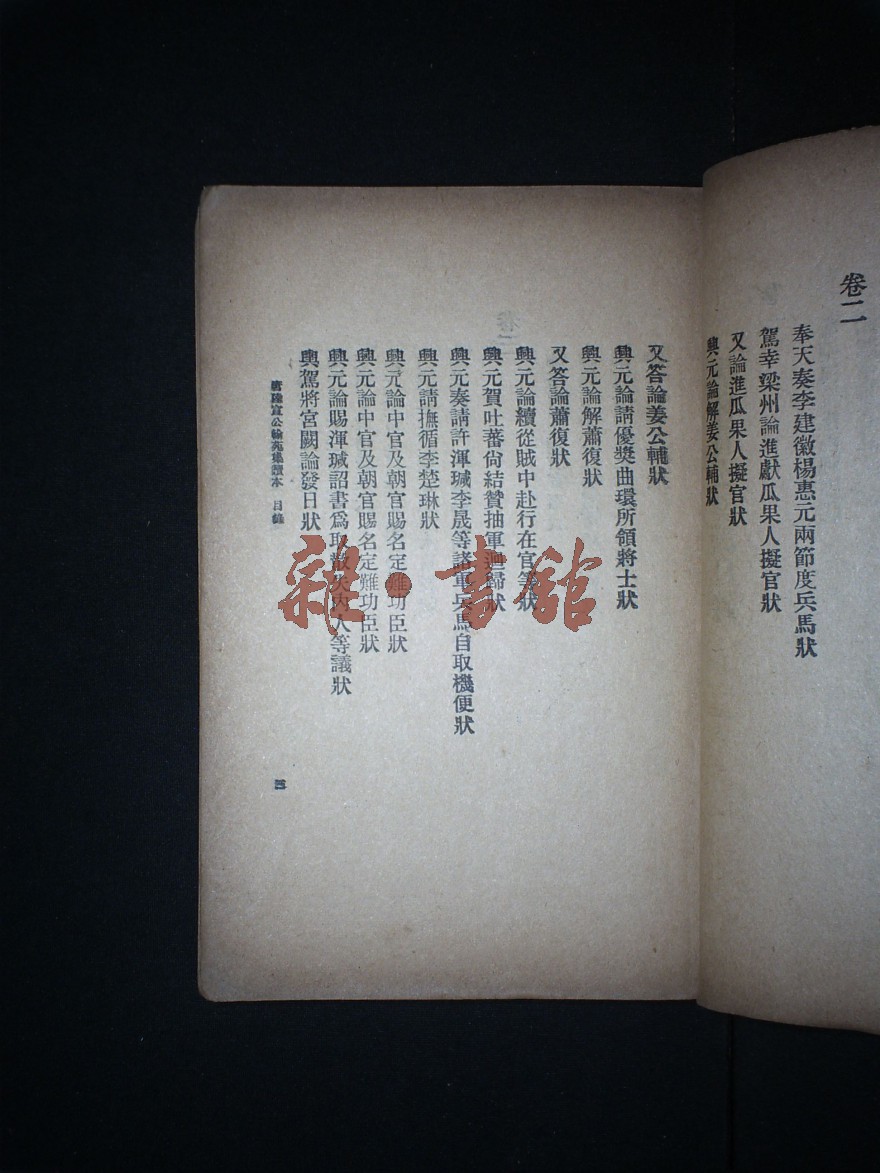 卷二
奉天奏李建徽楊惠元兩節度兵馬狀
駕幸梁州論進獻瓜果人擬官狀
又論進瓜果人擬官狀
興元論解姜公輔狀
又答論姜公輔狀
興元論請優獎曲環所領將士狀
興元論解蕭復狀
又答論蕭復狀
興元論續從賊中赴行在官等狀
興元賀吐蕃尙結贊抽軍迴歸狀
興元奏請許渾瑊李晟等諸軍兵馬自取機便狀
興元請撫循李楚琳狀
興元論中官及朝官賜名定難功臣狀
興元論中官及朝官賜名定難功臣狀
興元論賜渾瑊詔書爲取散失內人等議狀
輿駕將宮闕論發日狀
唐陸宣公翰苑集讀本 目錄
三
雜·書館